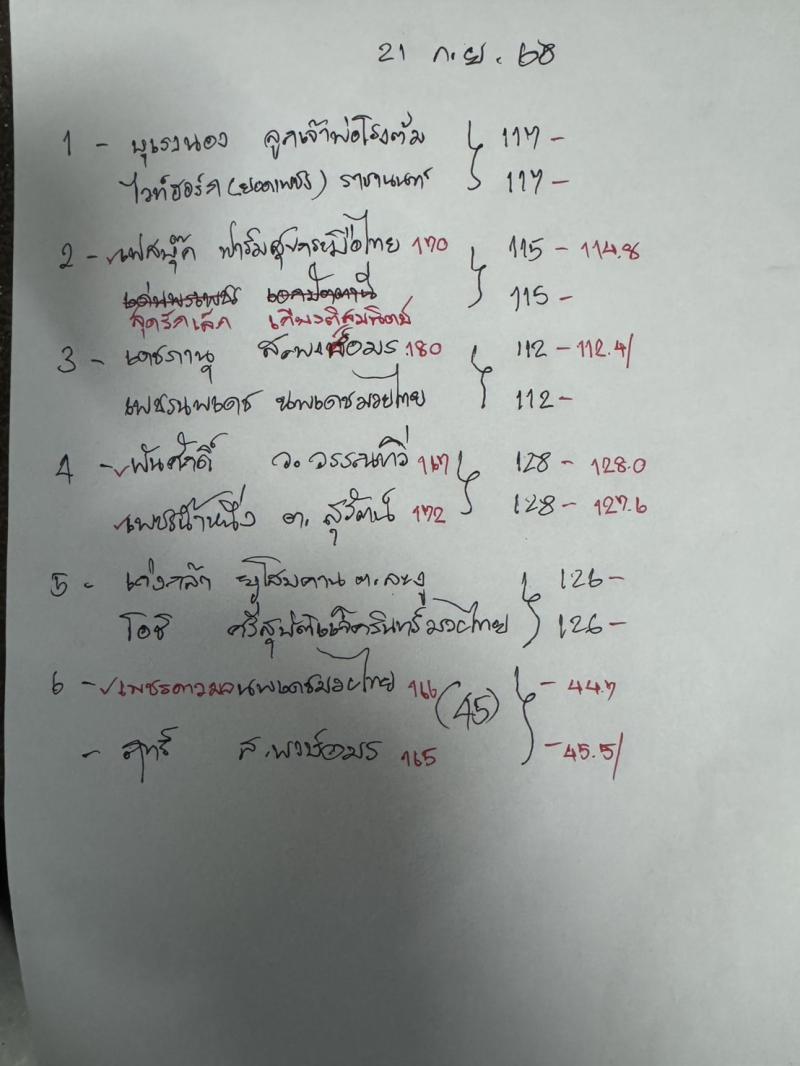 21 ก.ย. 68
1 - บุเรงนอง ลูกเจ้าพ่อโรงต้ม 117 -
ไวท์ฮอร์ส (ยอดเพชร) ราชานนท์ 117 -
2 - ✓เฟสบุ๊ค ฟาร์มสุขกระมือไทย 170 115 - 114.8
สุดรักเล็ก เกียรติสมทิตย์ 115 -
3 - เดชภาณุ ส.พงษ์อมร 180 112 - 112.4/
เพชรนพเดช นพเดชมวยไทย 112 -
4 - ✓พันศักดิ์ ว.วรรณทวี 167 128 - 128.0
✓เพชรน้ำหนึ่ง ต. สุรัตน์ 172 128 - 127.6
5 - เก่งกล้า ต.ละงู 126 -
โอชิ มวยไทย 126 -
6 - ✓เพชรดาวมลนพเดชมวยไทย 166 (45) - 44.7
- ฤทธิ์ ส.พงษ์อมร 165 - 45.5/